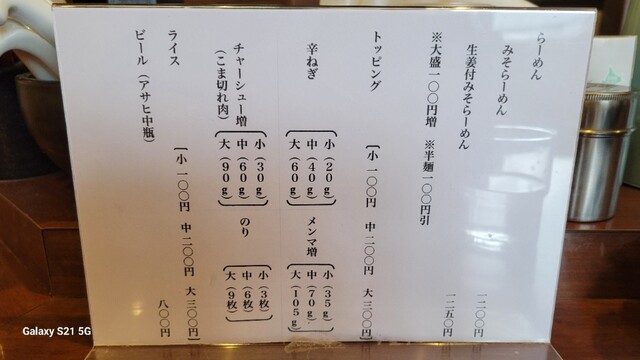 らーめん
みそらーめん 一二〇〇円
生姜付みそらーめん 一二五〇円
※大盛一〇〇円増 ※半麺一〇〇円引
トッピング [小 一〇〇円 中 二〇〇円 大 三〇〇円]
辛ねぎ
小(20g)
中(40g)
大(60g)
メンマ増
小(35g)
中(70g)
大(105g)
チャーシュー増
(こま切れ肉)
小(30g)
中(60g)
大(90g)
のり
小(3枚)
中(6枚)
大(9枚)
ライス [小 一〇〇円 中 二〇〇円 大 三〇〇円]
ビール(アサヒ中瓶) 八〇〇円
Galaxy S21 5G